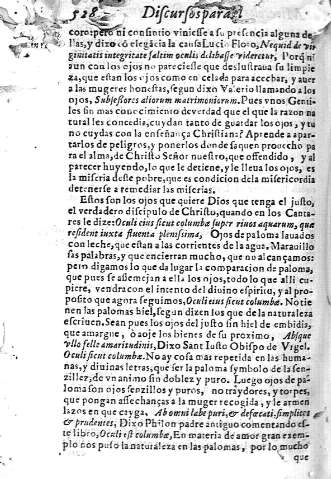 528 Discursos para el
coro: pero ni consintio viniesse a su presencia alguna de
llas, y dizo có elegácia la causa Lucio Floro, Nequid de vir
ginitatis integritate saltim oculis delibasse videretur, Porq̃ ni
aun con los ojos no pareciesse que deslustraua su limpie
za, que estan los ojos como en celada para acechar, y auer
a las mugeres honestas, segun dixo Valerio llamando a los
ojos, Subjessores aliorum matrimoniorum. Pues vnos Genti-
les sin mas conocimiento de verdad que el que la razon na
tural les concedia, cuydan tanto de guardar los ojos, y tu
no cuydas con la enseñança Christiana? Aprende a apar-
tarlos de peligros, y ponerlos donde saquen prouecho pa
ra el alma, de Christo Señor nuestro, que offendido, y al
parecer huyendo, lo que le detiene, y le lleua los ojos, es
la miseria deste pobre, que es condicion de la misericordia
detenerse a remediar las miserias.
Estos son los ojos que quiere Dios que tenga el justo,
el verdadero discipulo de Christo, quando en los Canta-
res le dize: Oculi eius sicut columbæ super riuos aquarum, quæ
resident iuxta fluenta plenissima, Ojos de paloma lauados
con leche, que estan a las corrientes de la agua, Marauillo
sas palabras, y que encierran mucho, que no alcançamos:
pero digamos lo que da lugar la comparacion de paloma,
que pues se assemejan a ella los ojos, todo lo que alli cu-
piere, vendra con el intento del diuino espiritu, y al pro-
posito que agora seguimos, Oculi eius sicut columbæ. No tie
nen las palomas hiel, segun dizen los que de la naturaleza
escriuen, Sean pues los ojos del justo sin hiel de embidia,
que amargue, o aoje los bienes de su proximo, Absque
vllo felle amaritudinis, Dixo Sant Iusto Obispo de Vrgel.
Oculi sicut columbæ. No ay cosa mas repetida en las huma-
nas, y diuinas letras, que ser la paloma symbolo de la sen-
zillez; de vn animo sin doblez y puro. Luego ojos de pa-
loma son ojos senzillos y puros, no traydores, y torpes,
que pongan assechanças a la muger recogida, y le armen
lazos en que cayga. Ab omni labe puri, & defæcati, simplices
& prudentes, Dixo Philon padre antiguo comentando es-
te libro, Oculi est columbæ, En materia de amor gran exem-
plo nos puso la naturaleza en las palomas, por lo mucho
que